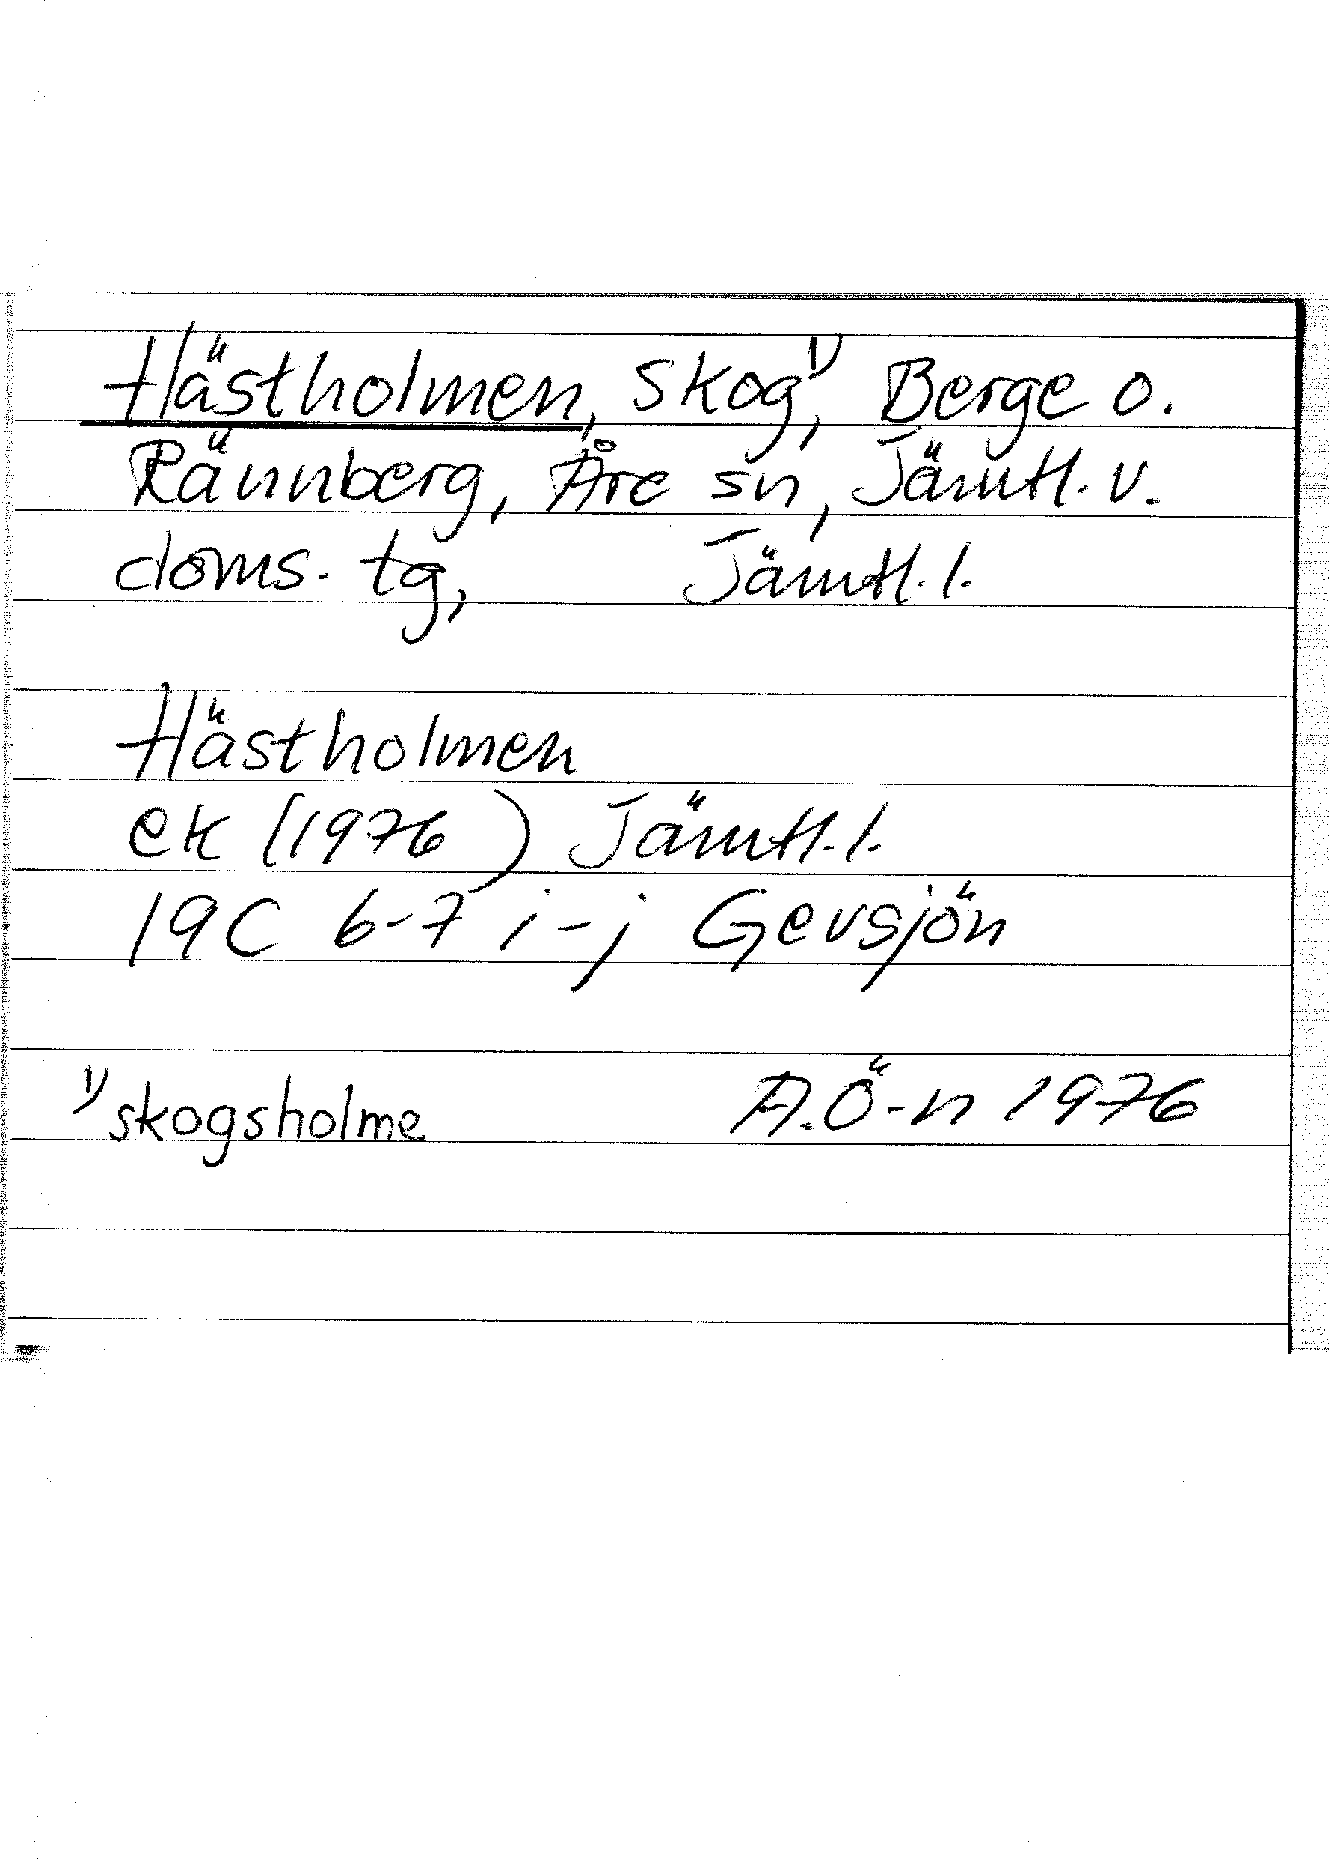 Hästholmen, skog¹⁾, Berge o.
Rännberg, Åre sn, Jämtl. v.
doms. tg, Jämtl. l.
Hästholmen
ek (1976 ) Jämtl. l.
19C 6-7 i-j Gevsjön
¹⁾ skogsholme A.Ö-n 1976